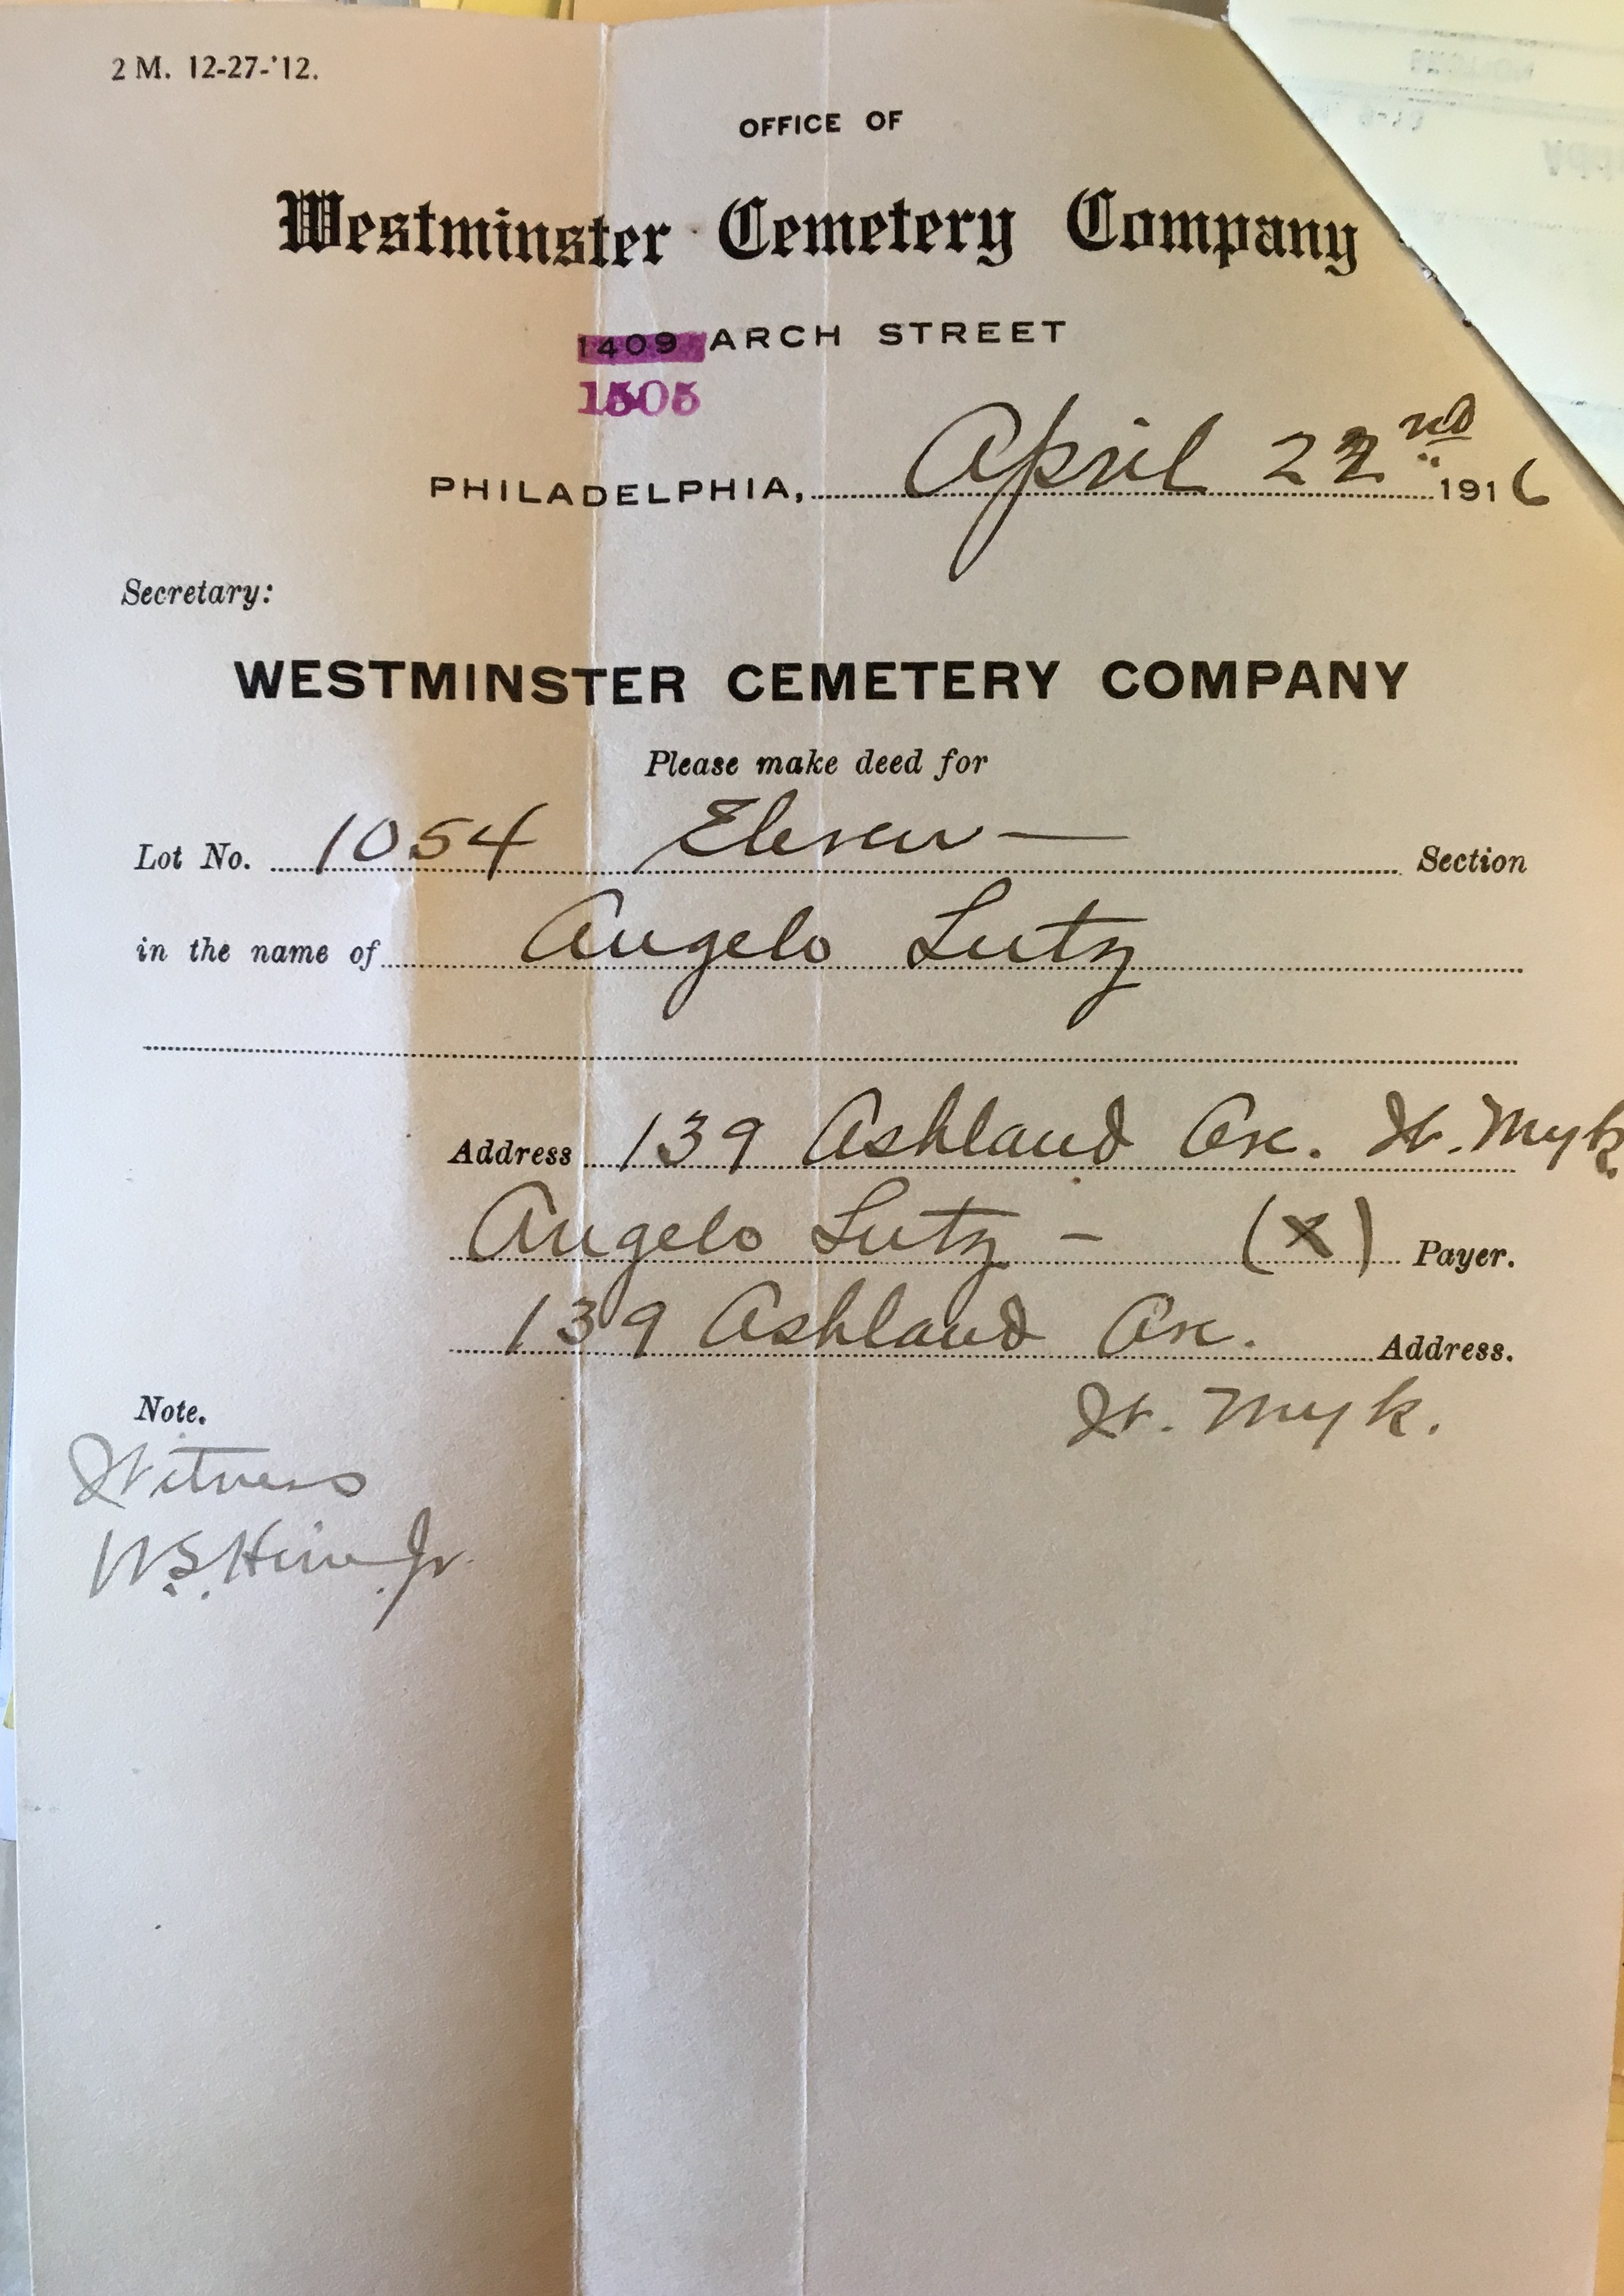 2 M. 12-27-'12.
OFFICE OF
Westminster Cemetery Company
1409 ARCH STREET
1505
PHILADELPHIA, April 22nd 1916
Secretary:
WESTMINSTER CEMETERY COMPANY
Please make deed for
Lot No. 1054 Eleven — Section
in the name of Angelo Lutz
Address 139 Ashland Ave. W. Myk.
Angelo Lutz — (X) Payer.
139 Ashland Ave. Address.
W. Myk.
Note.
Witness
W.S. Jr.